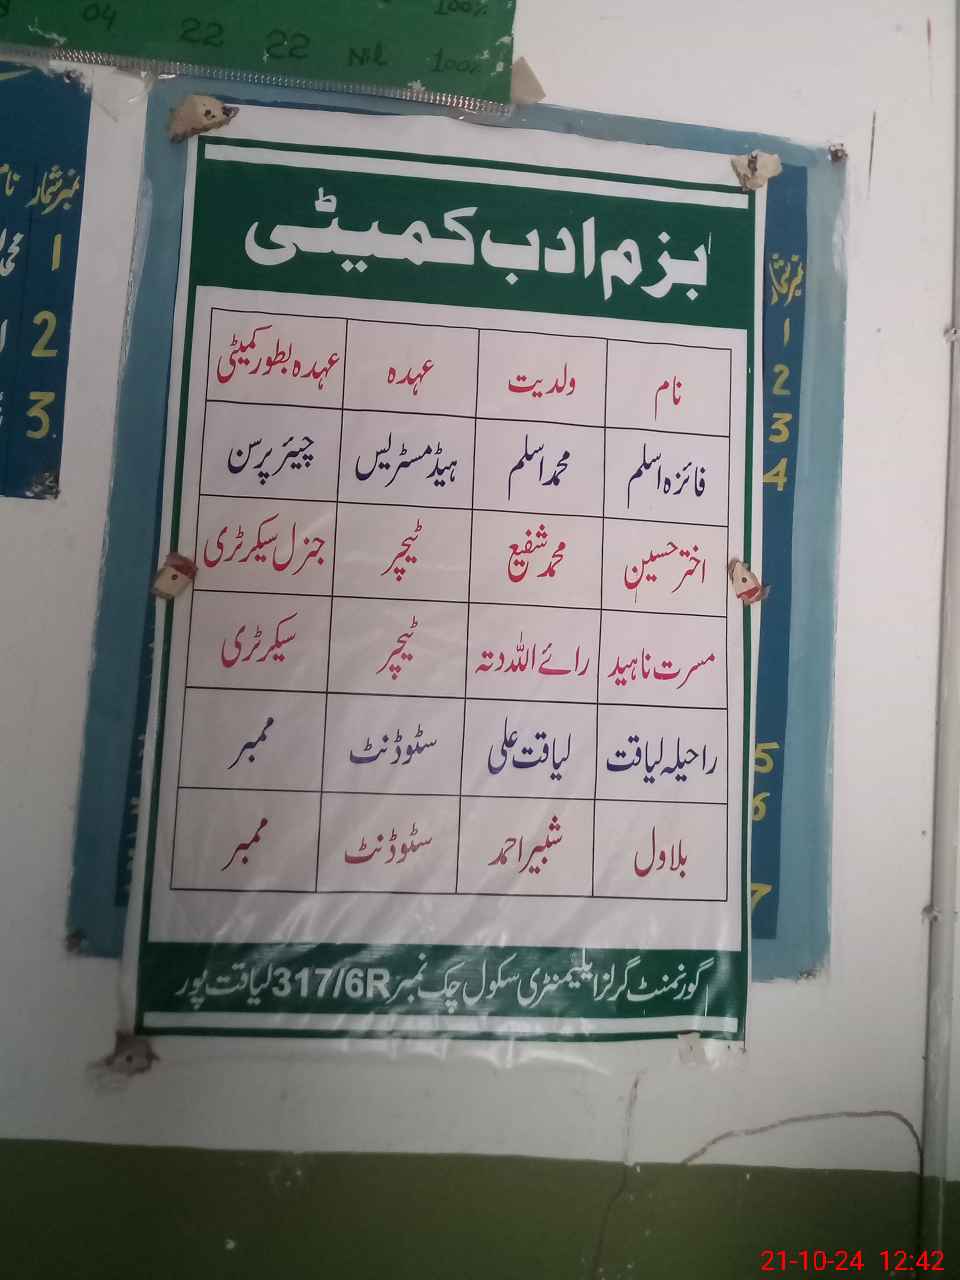 04 22 22 Nil 100%
100%
نمبر شمار
1
2
3
بزم ادب کمیٹی
نام ولدیت عہدہ عہدہ بطور کمیٹی
فائزہ اسلم محمد اسلم ہیڈ مسٹریس چیئر پرسن
اختر حسین محمد شفیع ٹیچر جنرل سیکرٹری
مسرت ناہید رائے اللہ دتہ ٹیچر سیکرٹری
راحیلہ لیاقت لیاقت علی سٹوڈنٹ ممبر
بلاول شبیر احمد سٹوڈنٹ ممبر
گورنمنٹ گرلز ایلیمنٹری سکول چک نمبر 317/6R لیاقت پور
نمبر شمار
1
2
3
4
5
6
7
21-10-24 12:42